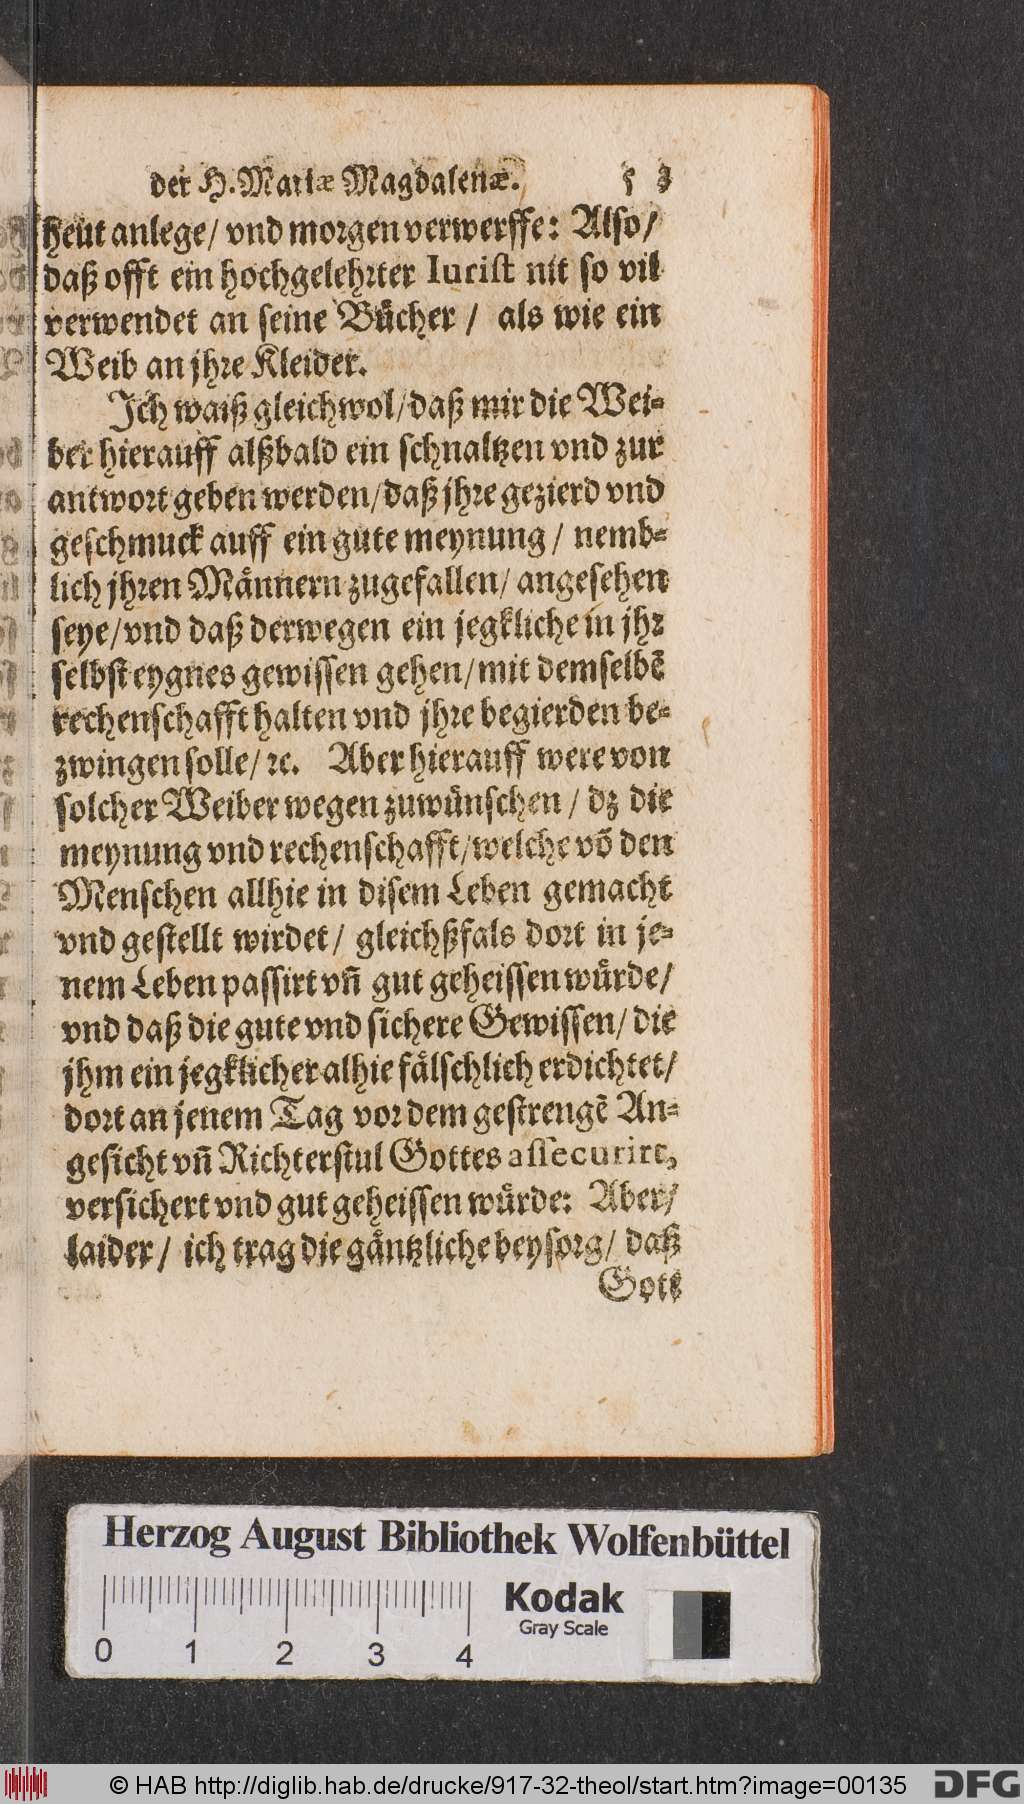 der H. Mariæ Magdalenæ. 53
heut anlege/ vnd morgen verwerffe: Also/
daß offt ein hochgelehrter Iurist nit so vil
verwendet an seine Bücher / als wie ein
Weib an jhre Kleider.
Ich waiß gleichwol/daß mir die Wei-
ber hierauff alßbald ein schnaltzen vnd zur
antwort geben werden/daß jhre gezierd vnd
geschmuck auff ein gute meynung / nemb-
lich jhren Männern zugefallen/ angesehen
seye/vnd daß derwegen ein jegkliche in jhr
selbst eygnes gewissen gehen/mit demselbẽ
rechenschafft halten vnd jhre begierden be-
zwingen solle/ ꝛc. Aber hierauff were von
solcher Weiber wegen zuwünschen / dz die
meynung vnd rechenschafft/welche võ den
Menschen allhie in disem Leben gemacht
vnd gestellt wirdet/ gleichßfals dort in je-
nem Leben passirt vñ gut geheissen würde/
vnd daß die gute vnd sichere Gewissen/ die
jhm ein jegklicher alhie fälschlich erdichtet/
dort an jenem Tag vor dem gestrengẽ An-
gesicht vñ Richterstul Gottes assecurirt,
versichert vnd gut geheissen würde: Aber/
laider / ich trag die gäntzliche beysorg/ daß
Gott
Herzog August Bibliothek Wolfenbüttel
Kodak
Gray Scale
0 1 2 3 4
© HAB http://diglib.hab.de/drucke/917-32-theol/start.htm?image=00135
DFG